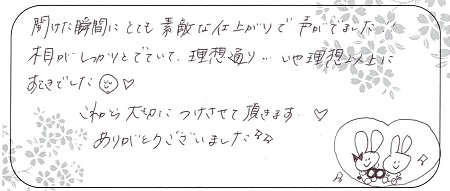 開けた瞬間にとても素敵な仕上がりで声がでました!!
相がしっかりとでていて、理想通り…いや理想以上に
すてきでした♡
これから大切につけさせて頂きます♡
ありがとうございました